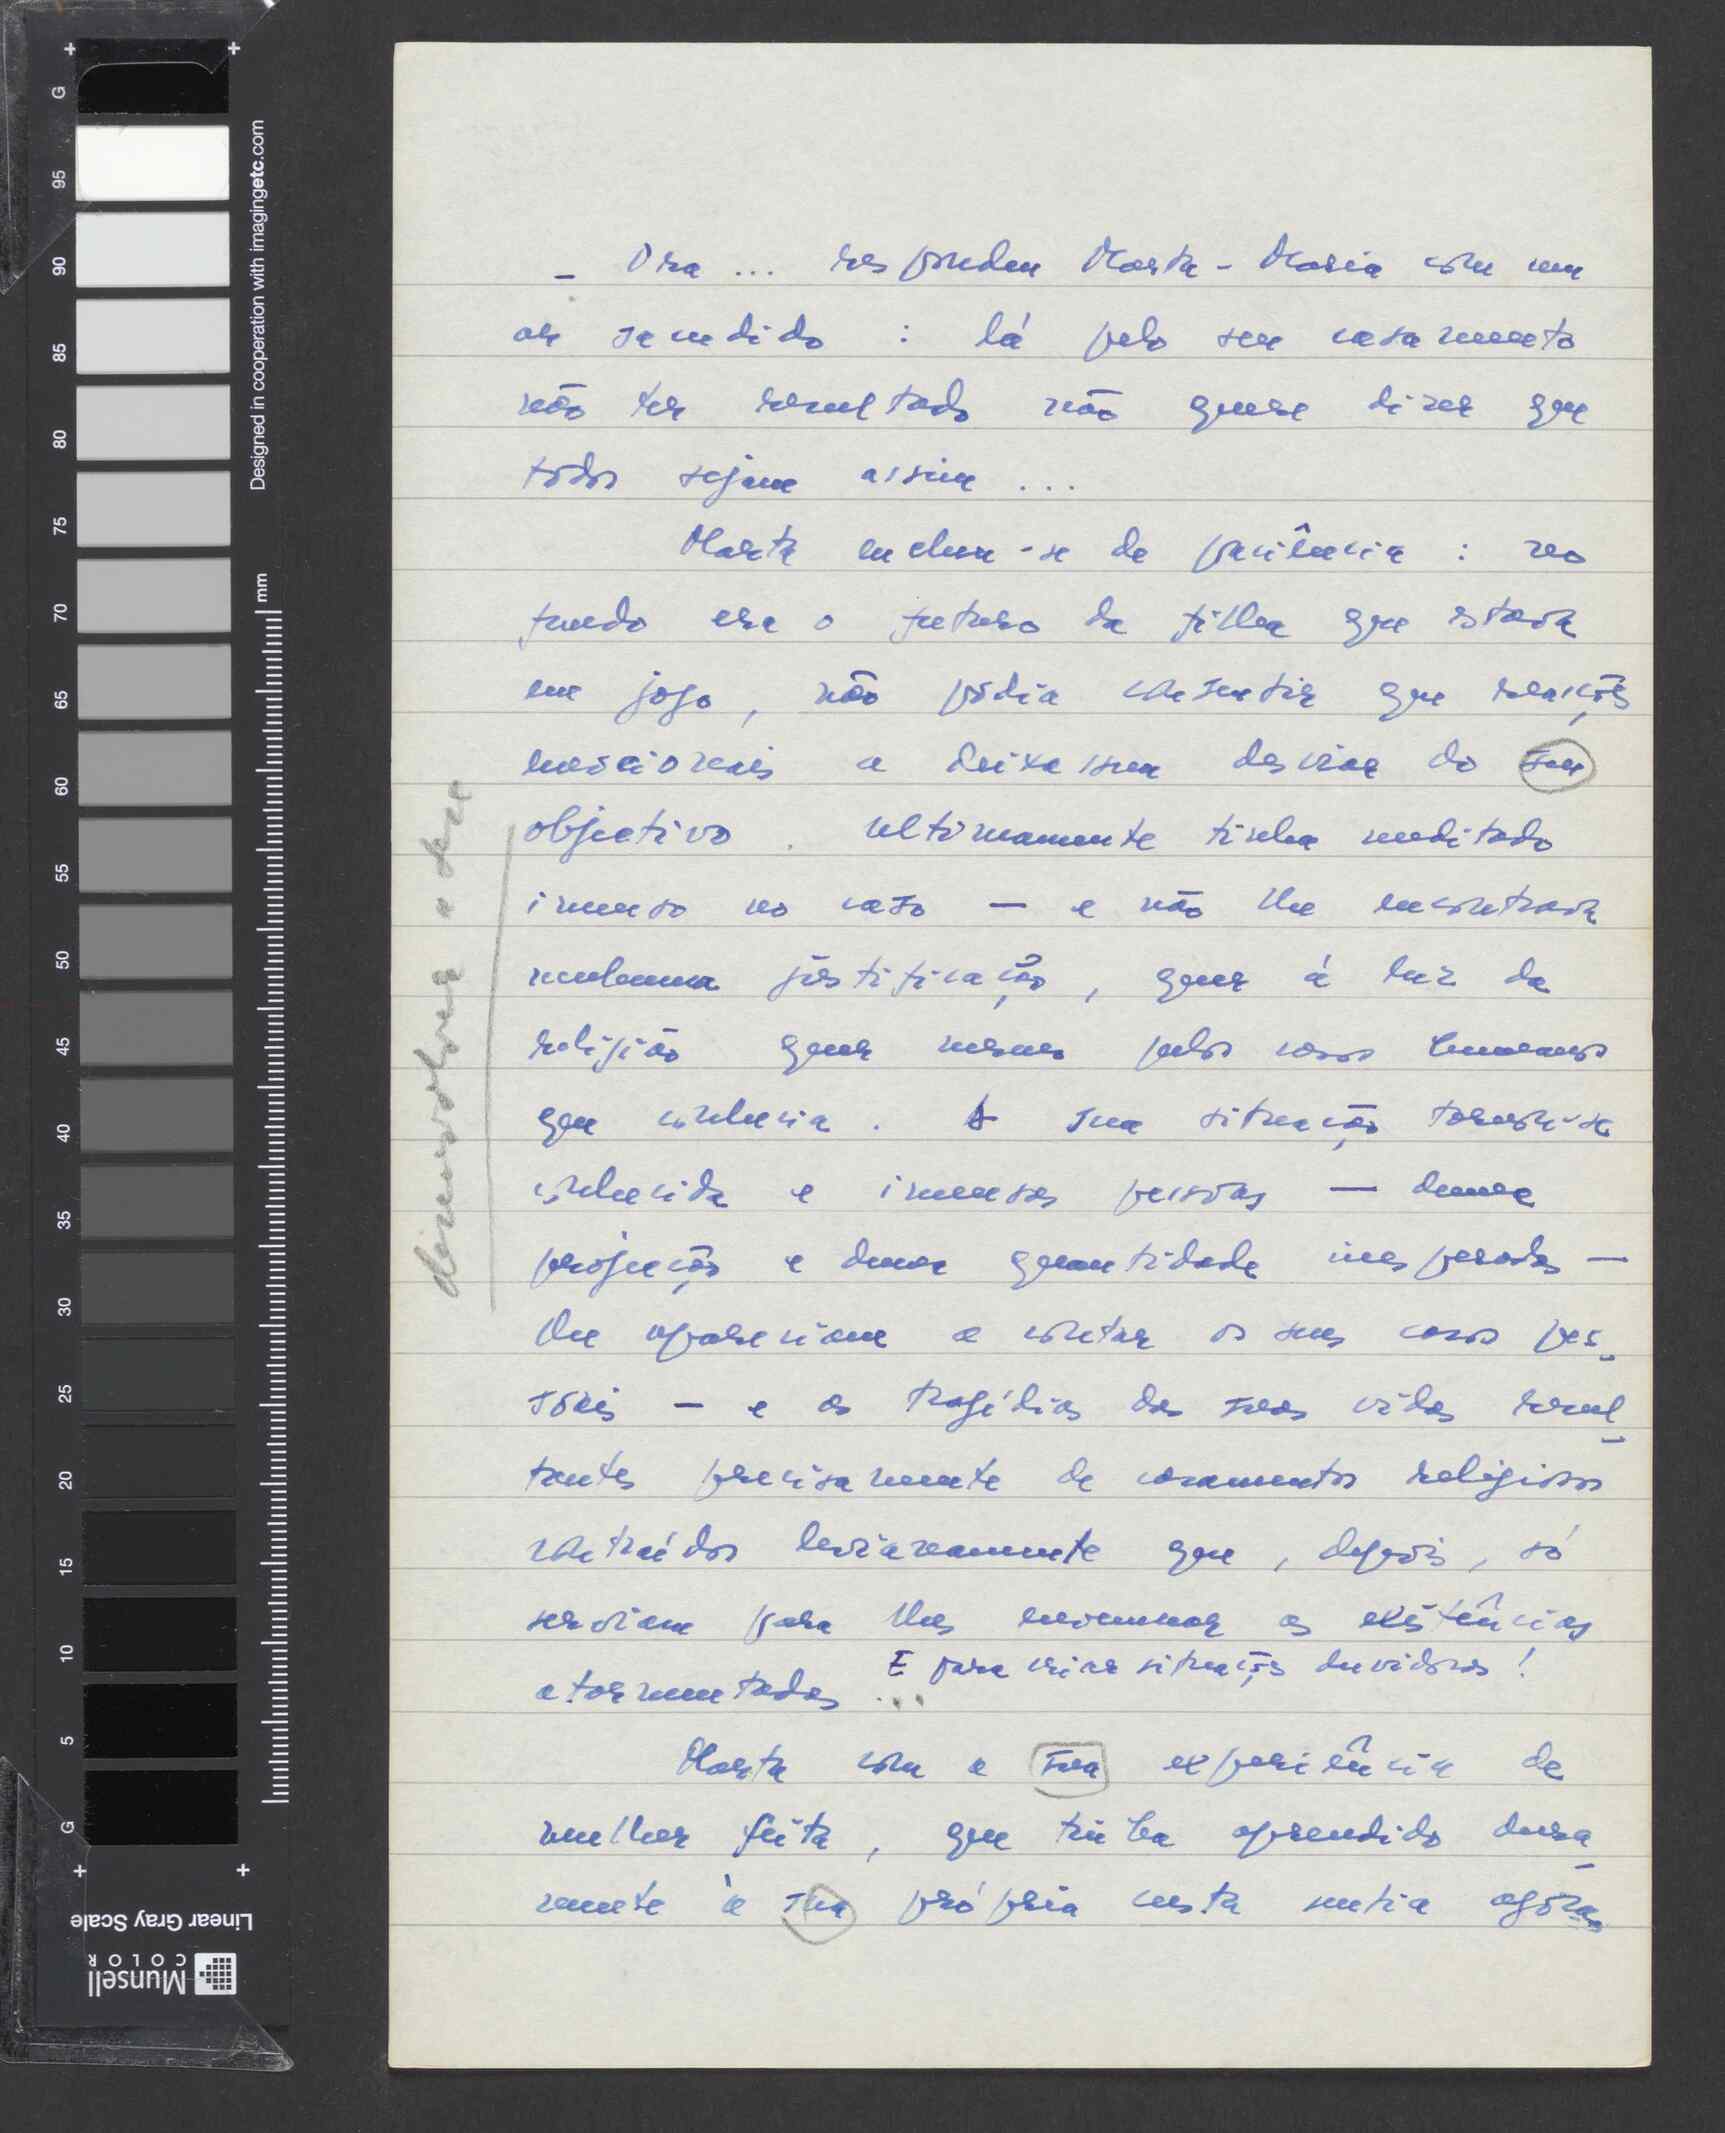 - Ora ... respondeu Marta-Maria com um
ar sacudido : lá pelo seu casamento
não ter resultado não quere dizer que
todos sejam assim ...
Marta encheu-se de paciência : no
fundo era o futuro da filha que estava
em jogo, não podia consentir que reacções
emocionais a deixassem desviar do seu
objectivo. ultimamente tinha meditado
imenso no caso — e não lhe encontrava
nenhuma justificação, quer à luz da
religião quer mesmo pelos casos humanos
que conhecia. A sua situação tornou-se
conhecida e imensas pessoas — duma
projecção e duma quantidade inesperadas —
lhe apareciam a contar os seus casos pes-
soais — e as tragédias das suas vidas resul-
tantes precisamente de casamentos religiosos
contraídos levianamente que, depois, só
serviam para lhes envenenar as existências
atormentadas ... E para criar situações duvidosas!
Marta com a sua experiência de
mulher feita, que tinha aprendido dura-
mente à sua própria custa sentia agora
desenvolver a
Designed in cooperation with imagingetc.com
mm
G
95
90
85
80
75
70
65
60
55
50
45
40
35
30
25
20
15
10
5
G
Linear Gray Scale
Munsell
COLOR